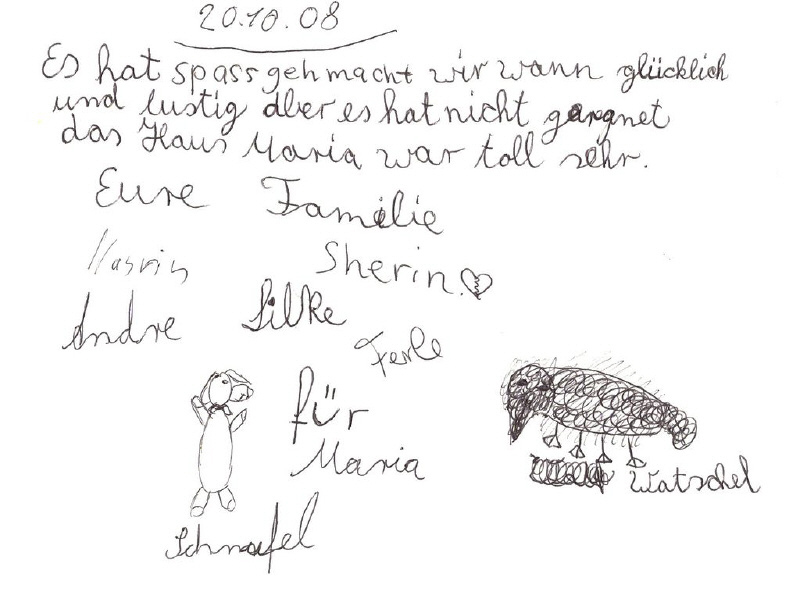 20.10.08
Es hat spass gehmacht wir wann glücklich
und lustig aber es hat nicht gargnet
das Haus Maria war toll sehr.
Eure Familie
Sherin
Andre Silke
für
Maria
Watschel
Schnoofel